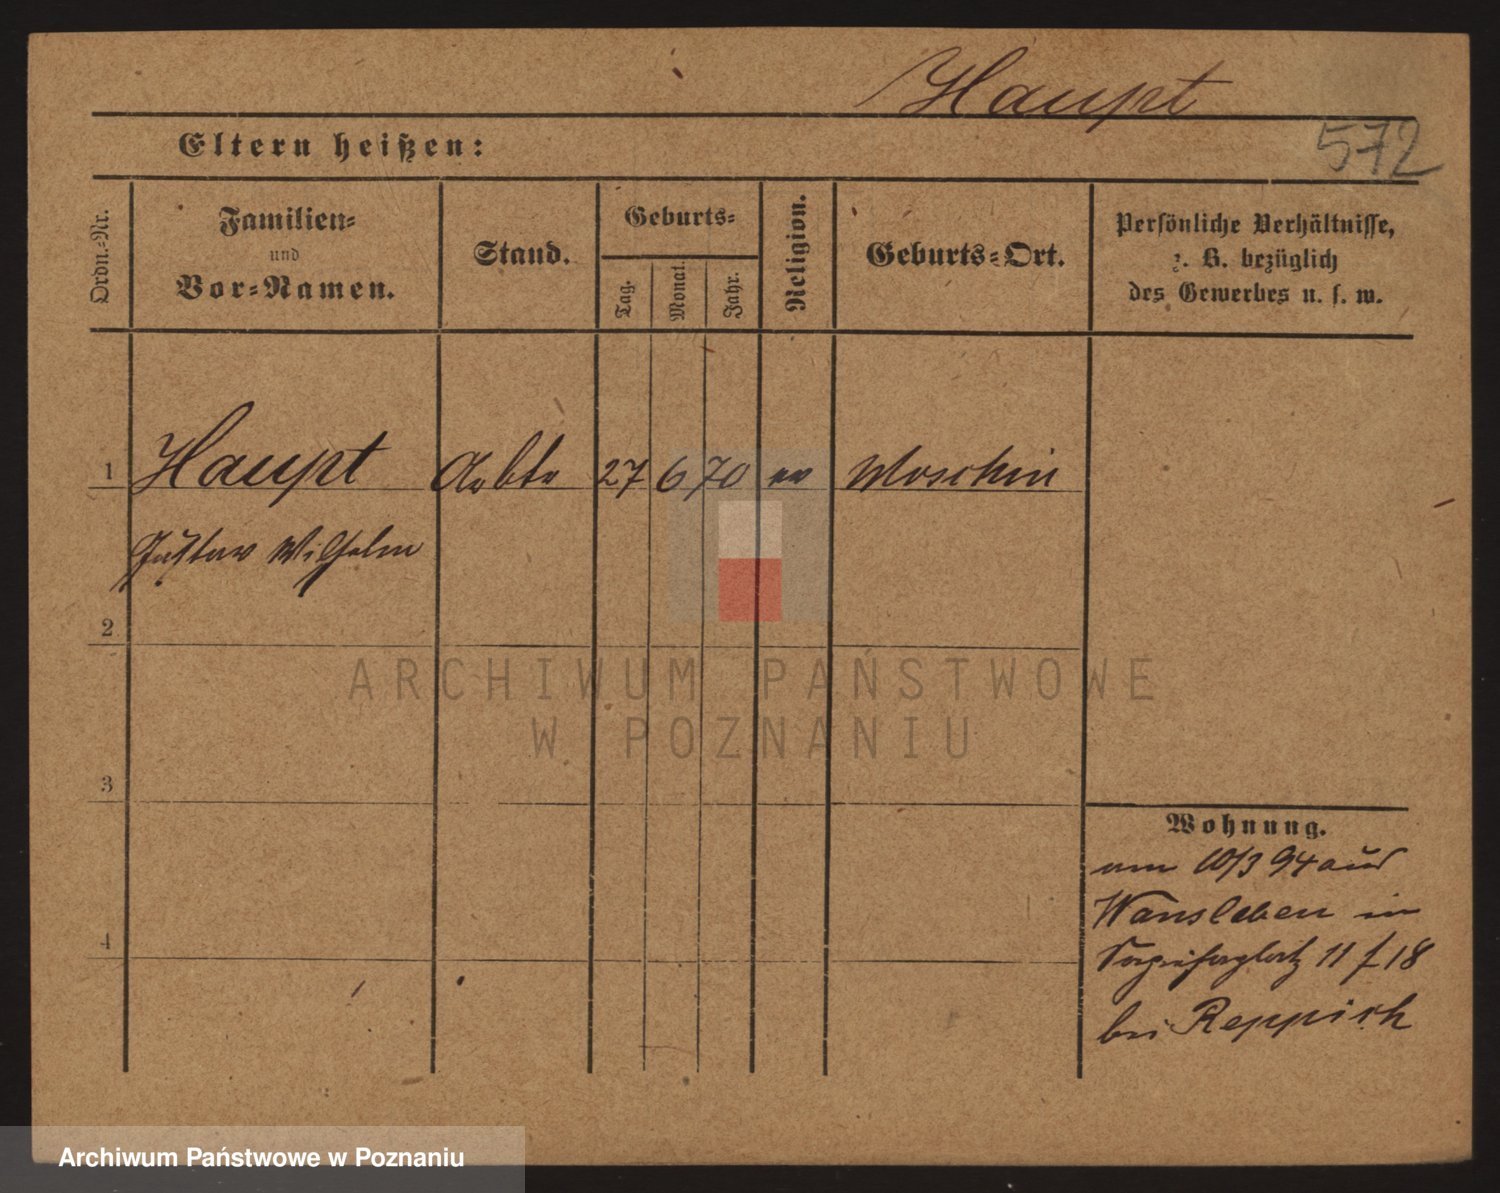 Haupt
Eltern heißen:
572
Ordn.-Nr.
Familien-
und
Vor-Namen.
Stand.
Geburts-
Tag.
Monat.
Jahr.
Religion.
Geburts-Ort.
Persönliche Verhältnisse,
z. B. bezüglich
des Gewerbes u. s. w.
1 Haupt Arbtr 27 6 70 ev Moschin
Gustav Wilhelm
2
3
4
Wohnung.
am 10/3 94 aus
Wansleben in
11 18
bei Reppich
ARCHIWUM PAŃSTWOWE
W POZNANIU
Archiwum Państwowe w Poznaniu